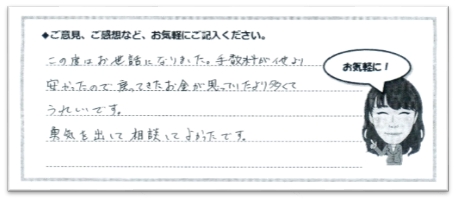 ◆ご意見、ご感想など、お気軽にご記入ください。
お気軽に！
この度はお世話になりました。手数料が他より
安かったので戻ってきたお金が思っていたより多くて
うれしいです。
勇気を出して相談してよかったです。